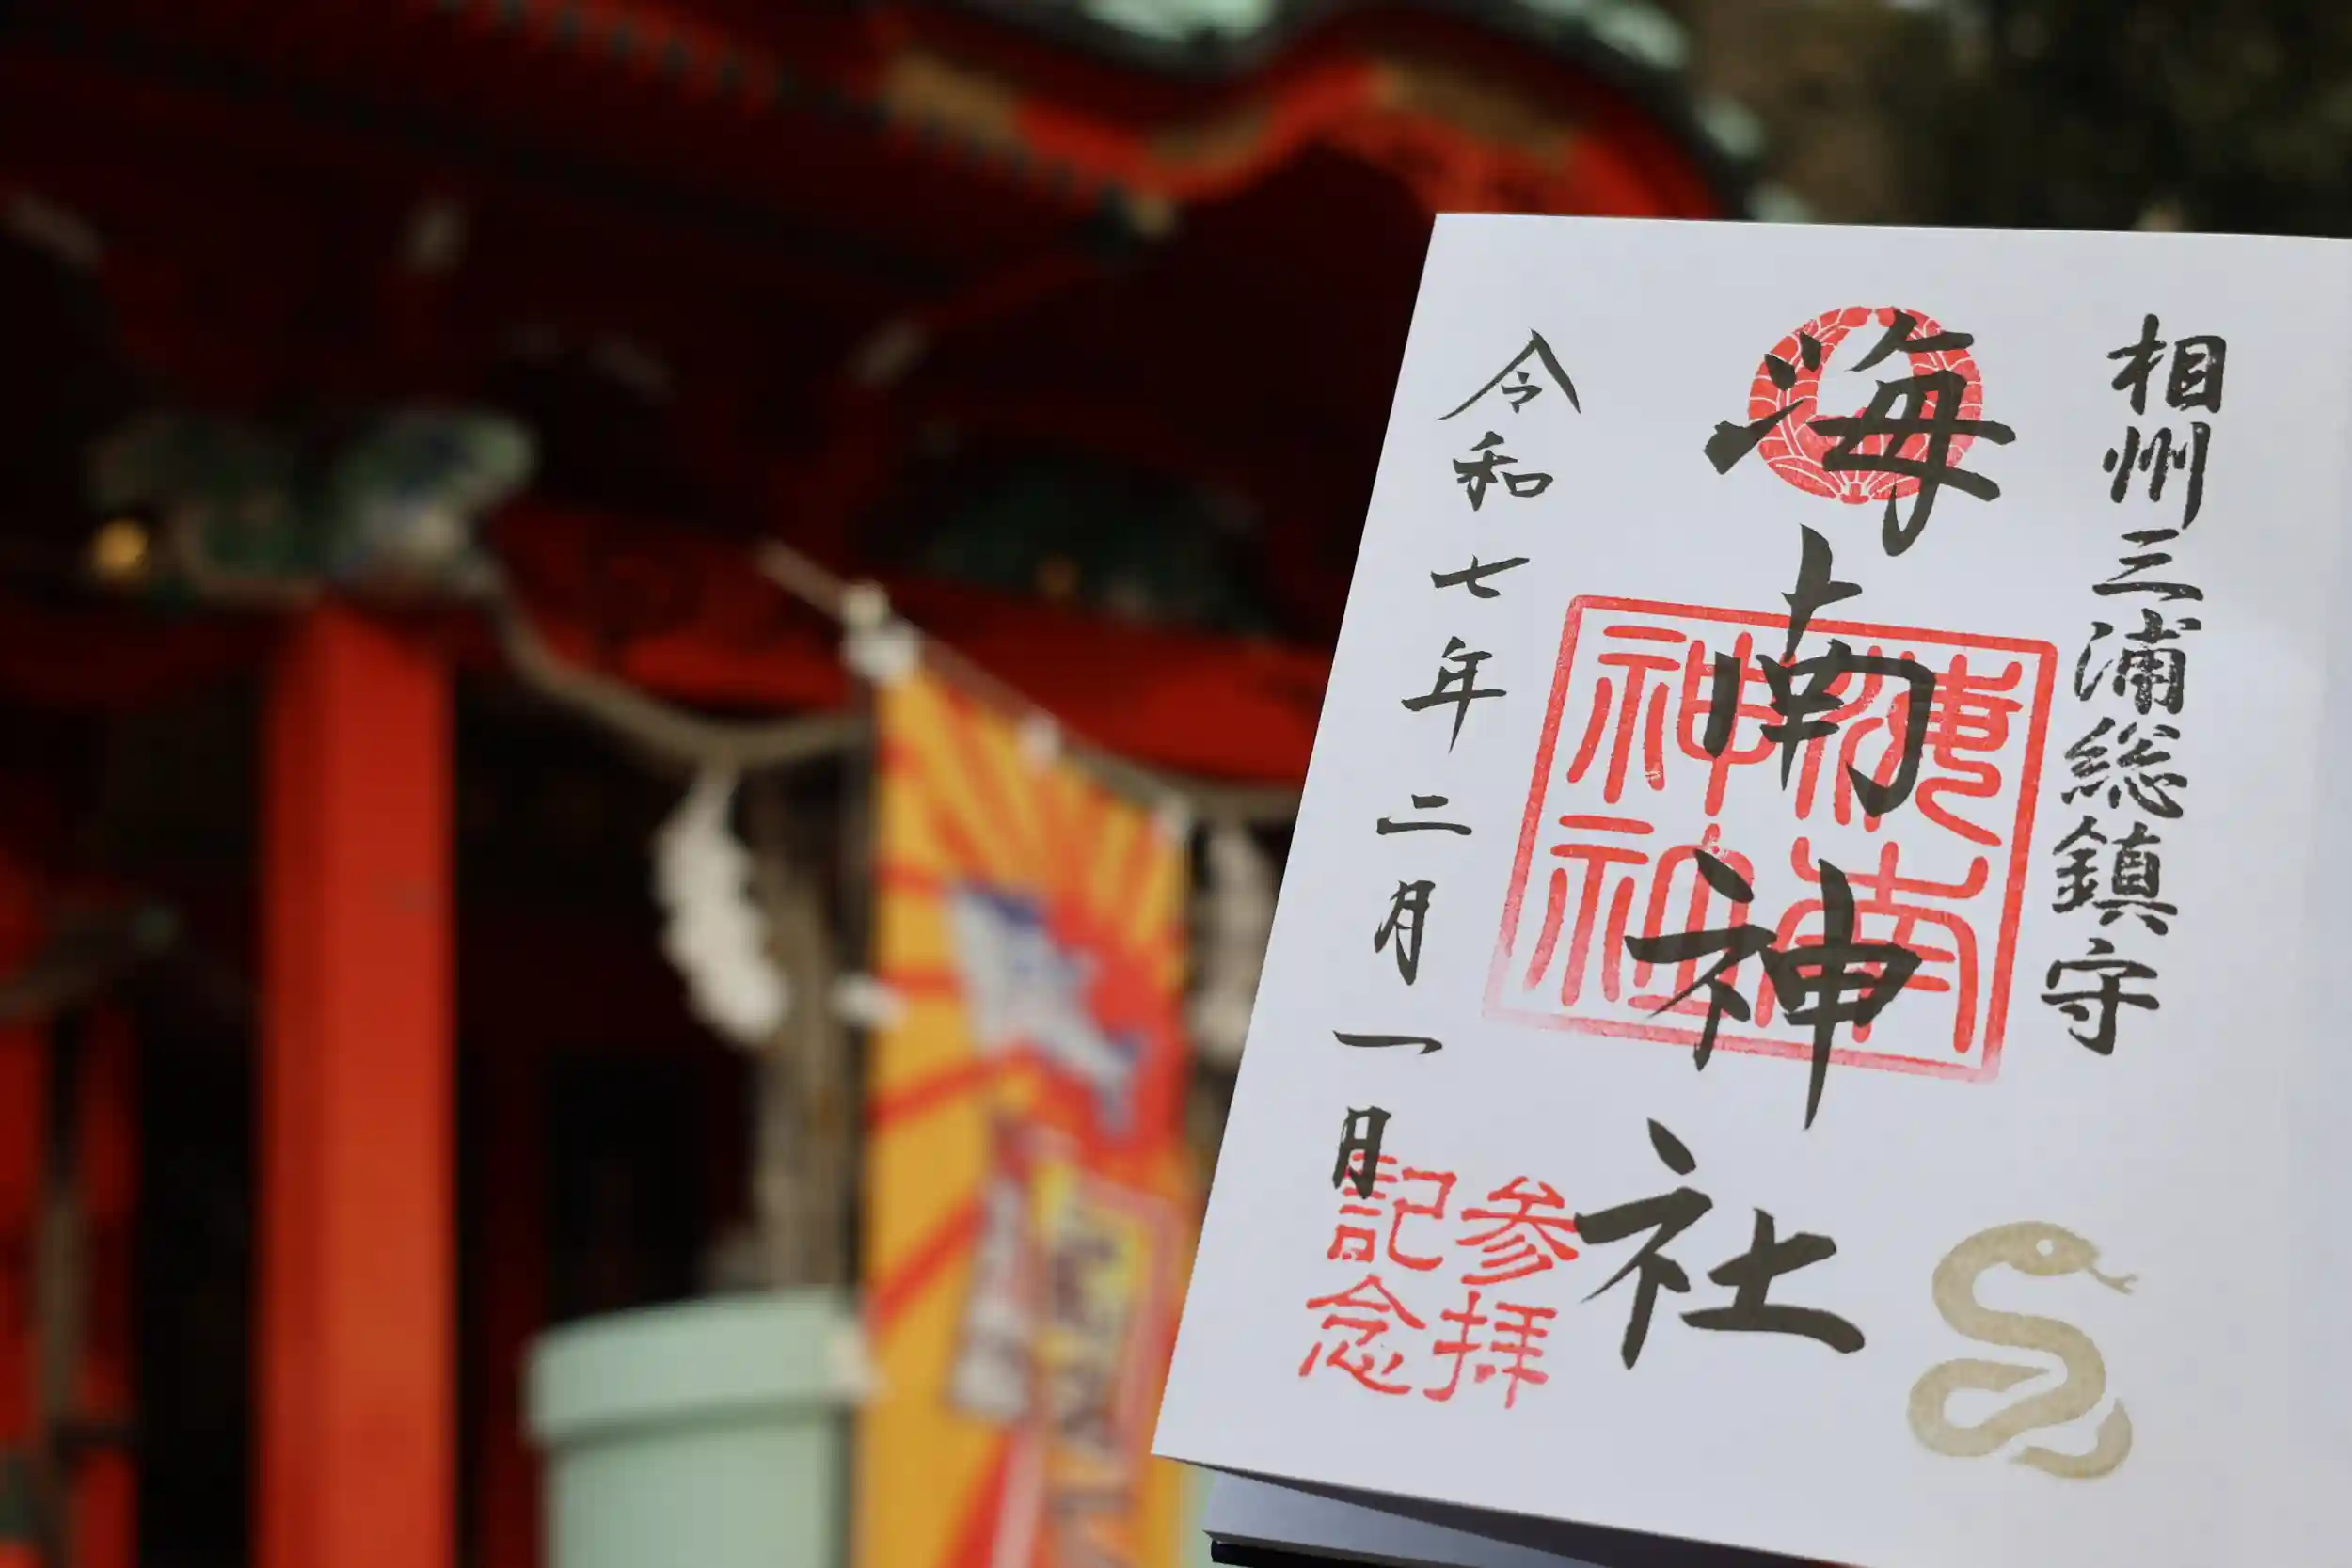 相州三浦総鎮守
海南神社
海南神社
参拝
記念
令和七年二月一日